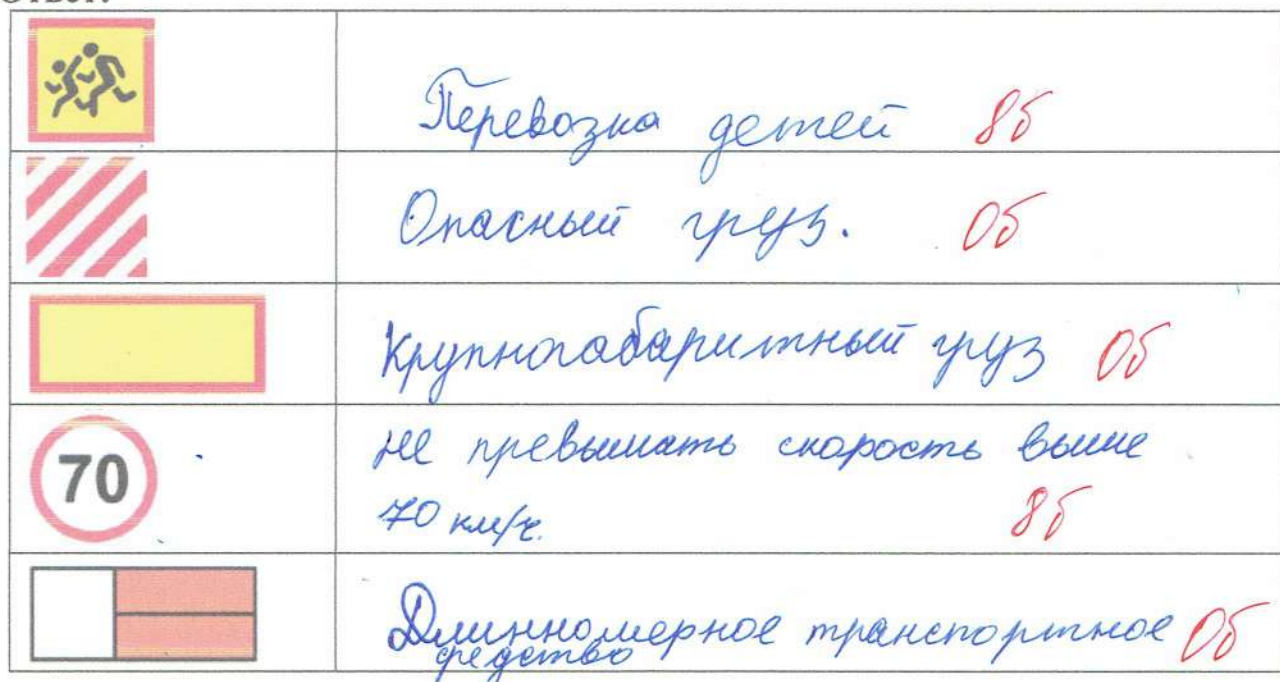 Ответ:
Перевозка детей 8б
Опасный груз. 0б
Крупногабаритный груз 0б
70
не превышать скорость выше
70 км/ч. 8б
Длинномерное транспортное 0б
средство